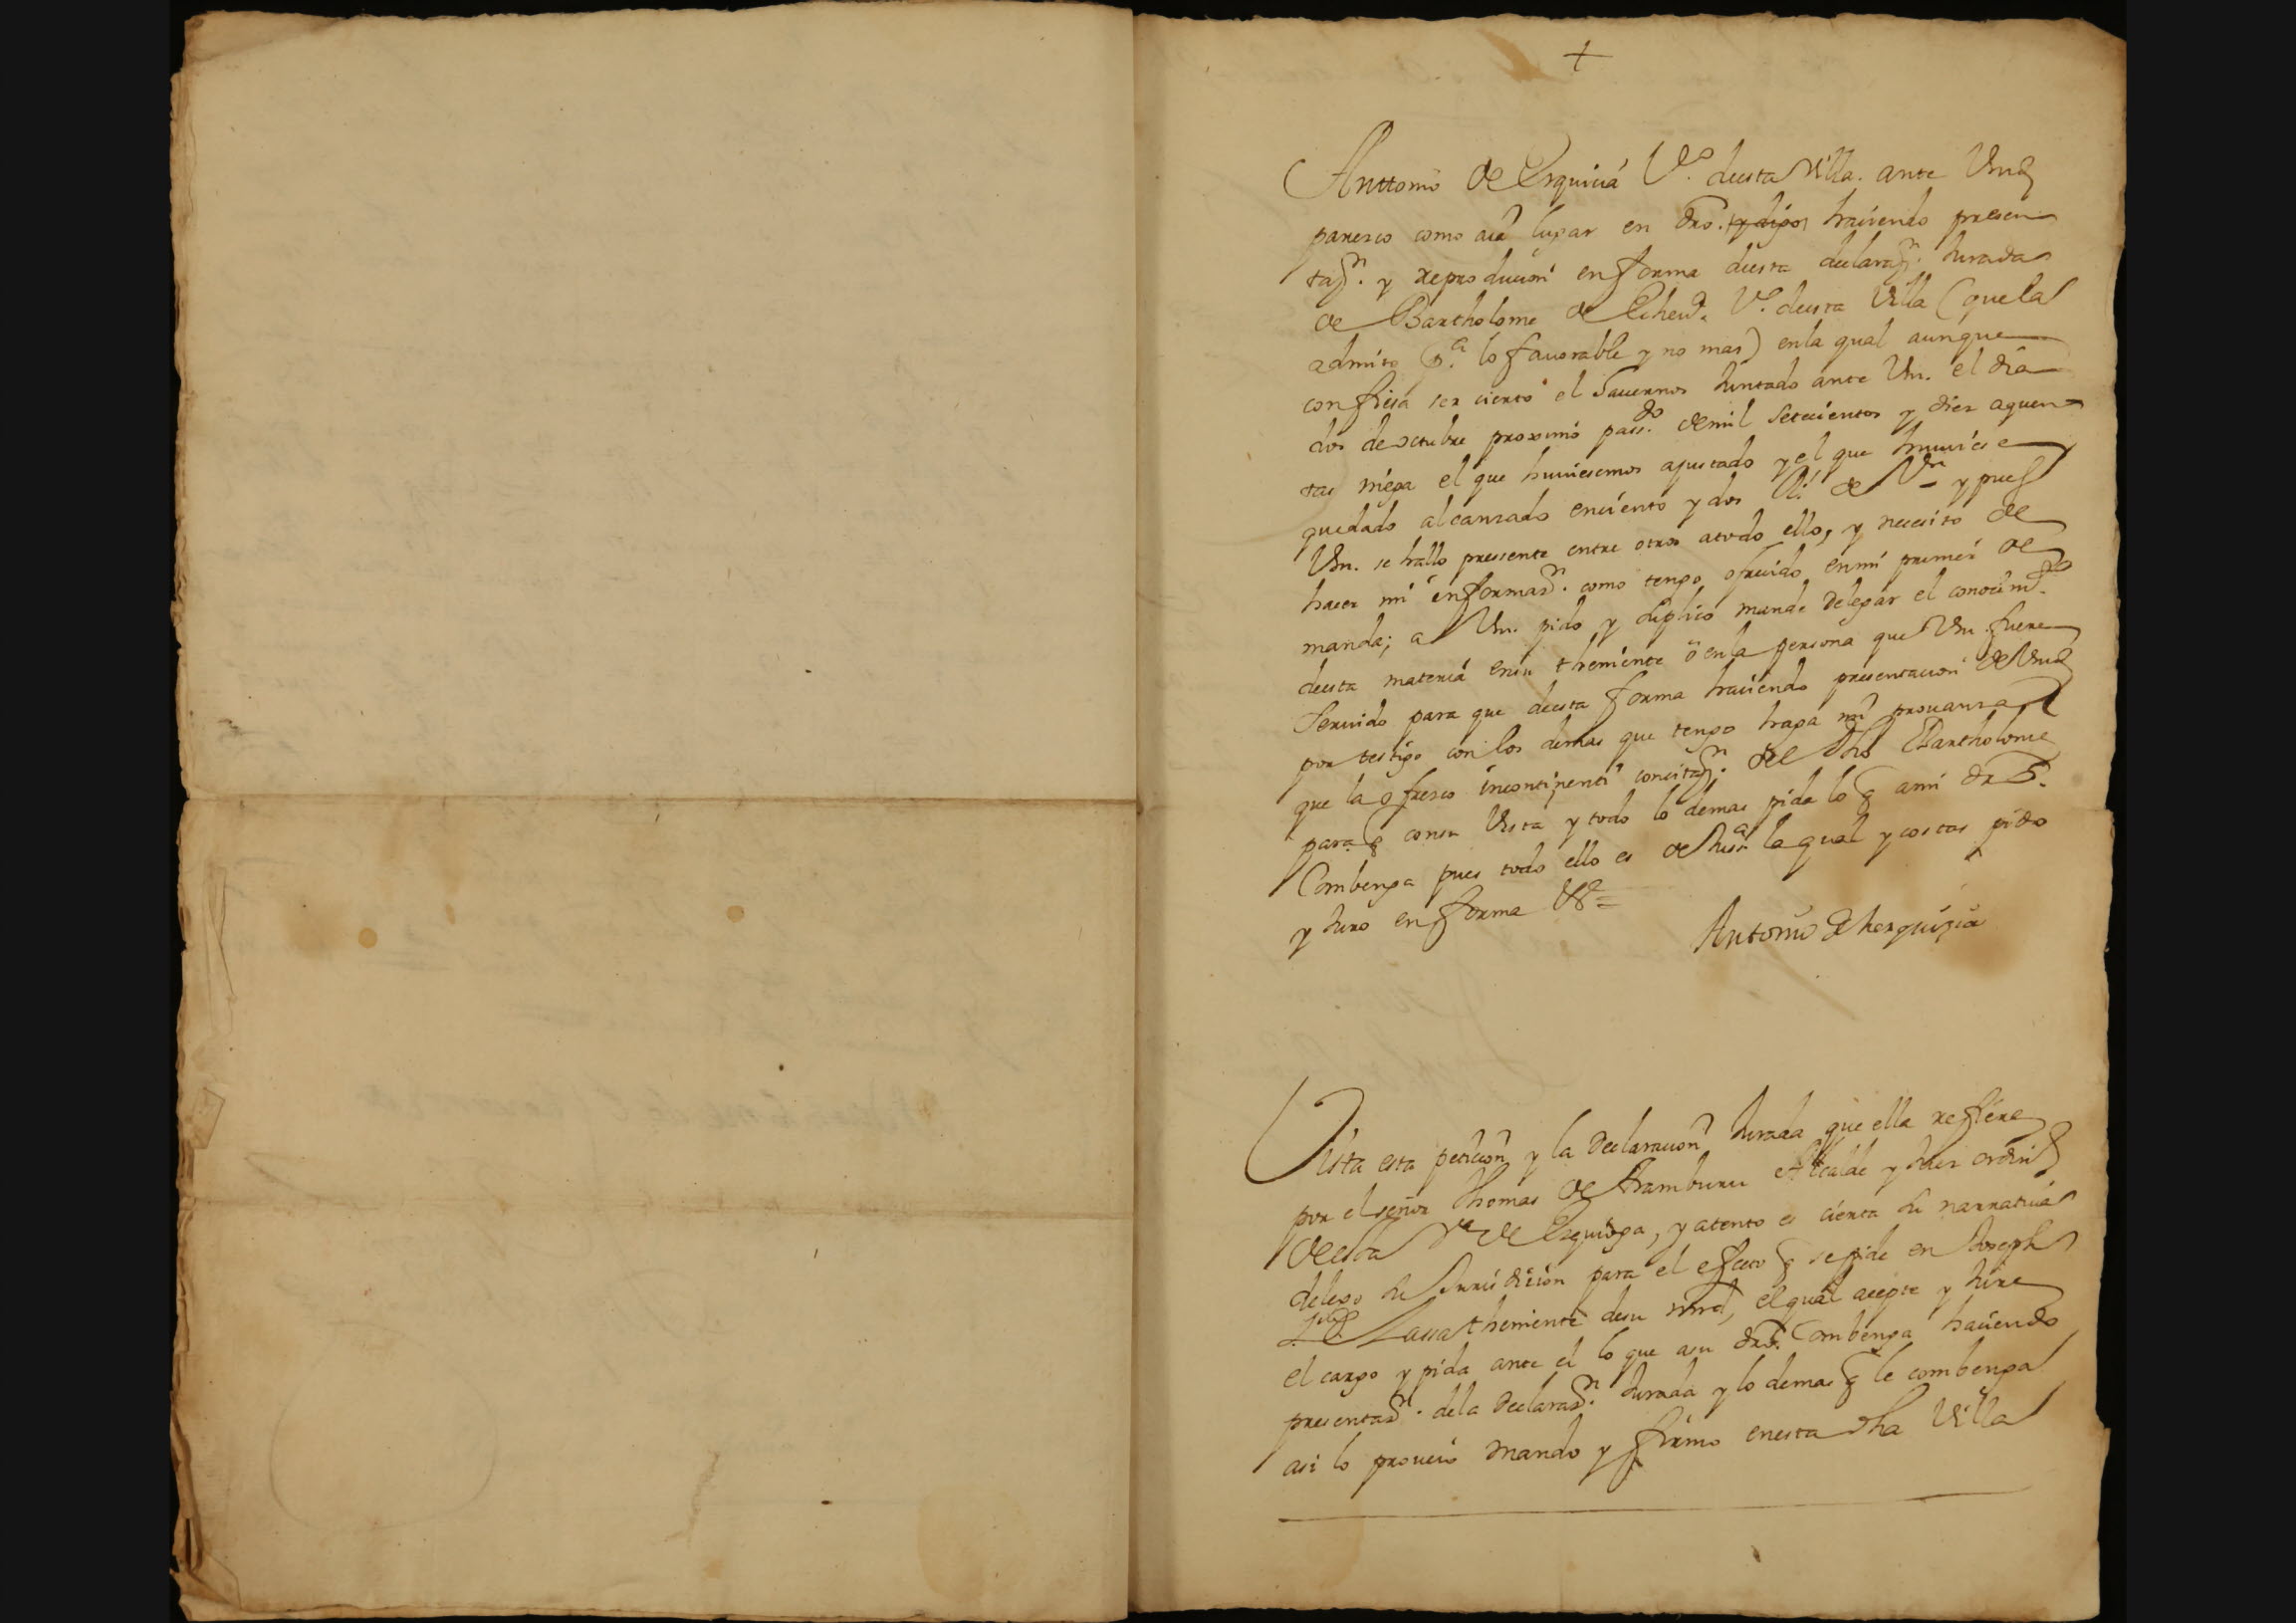 +
Anttonio de Erquicia Vº. desta Villa. ante Vmd
paresco como aia lugar en dro. y digo haciendo presen
taçn. y reproducion en forma desta declaraçn. Jurada
de Bartholome de Echevª. Vº. desta Villa (que la
admito pª. lo favorable y no mas) en la qual aunque
confiesa ser cierto el havernos Juntado ante Vm. el dia
dos de octubre proximo passdo. de mil setecientos y diez aquen
tas niega el que huviesemos ajustado y el que huviese
quedado alcanzado en ciento y dos Rs. de Vn y pues
Vm. se hallo pressente entre otros a todo ello, y necesito de
hacer mi informazn. como tengo ofrecido en mi primer de
manda; a Vm. pido y suplico mande delegar el conocimto.
desta materia en su theniente ō en la persona que Vm. fuere
Servido para que desta forma haciendo presentacion de Vmd
por testigo con los demas que tengo haga mi provanza
que la ofresco incontinenti con citazn. del dho Bartholome
para q con su Vista y todo lo demas pida lo q a mi dro.
Combenga pues todo ello es de Justª la qual y costas pido
y Juro en forma &ª =
Antonio de herquiçia
Vista esta peticion y la Declaracion Jurada que ella refiere
por el señor Thomas de Aramburu Alcalde y Juez ordinº
de esta Vª de Ezquioga, y atento es cierta su narrativa
delego su Jurisdicion para el efecto q se pide en Joseph
de Lassa theniente de su mrd, el qual acepte y Jure
el cargo y pida ante el lo que a su dro. Combenga haciendo
presentazn. de la Declarazn. Jurada y lo demas q le combenga
asi lo proveio mando y firmo en esta dha Villa